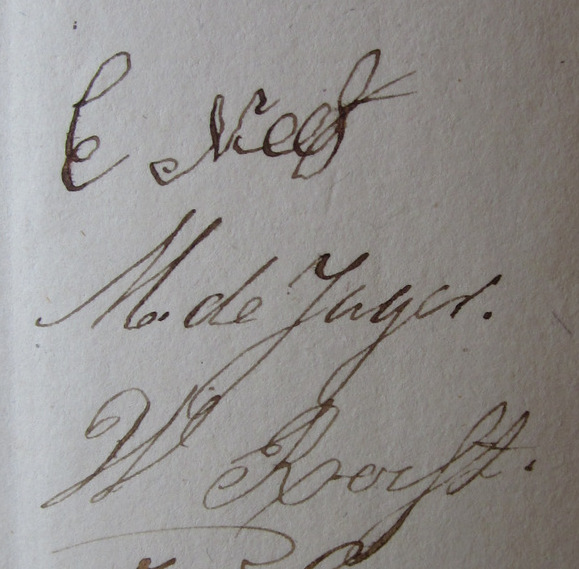 C Neef
M. de Jager.
W Rorst.